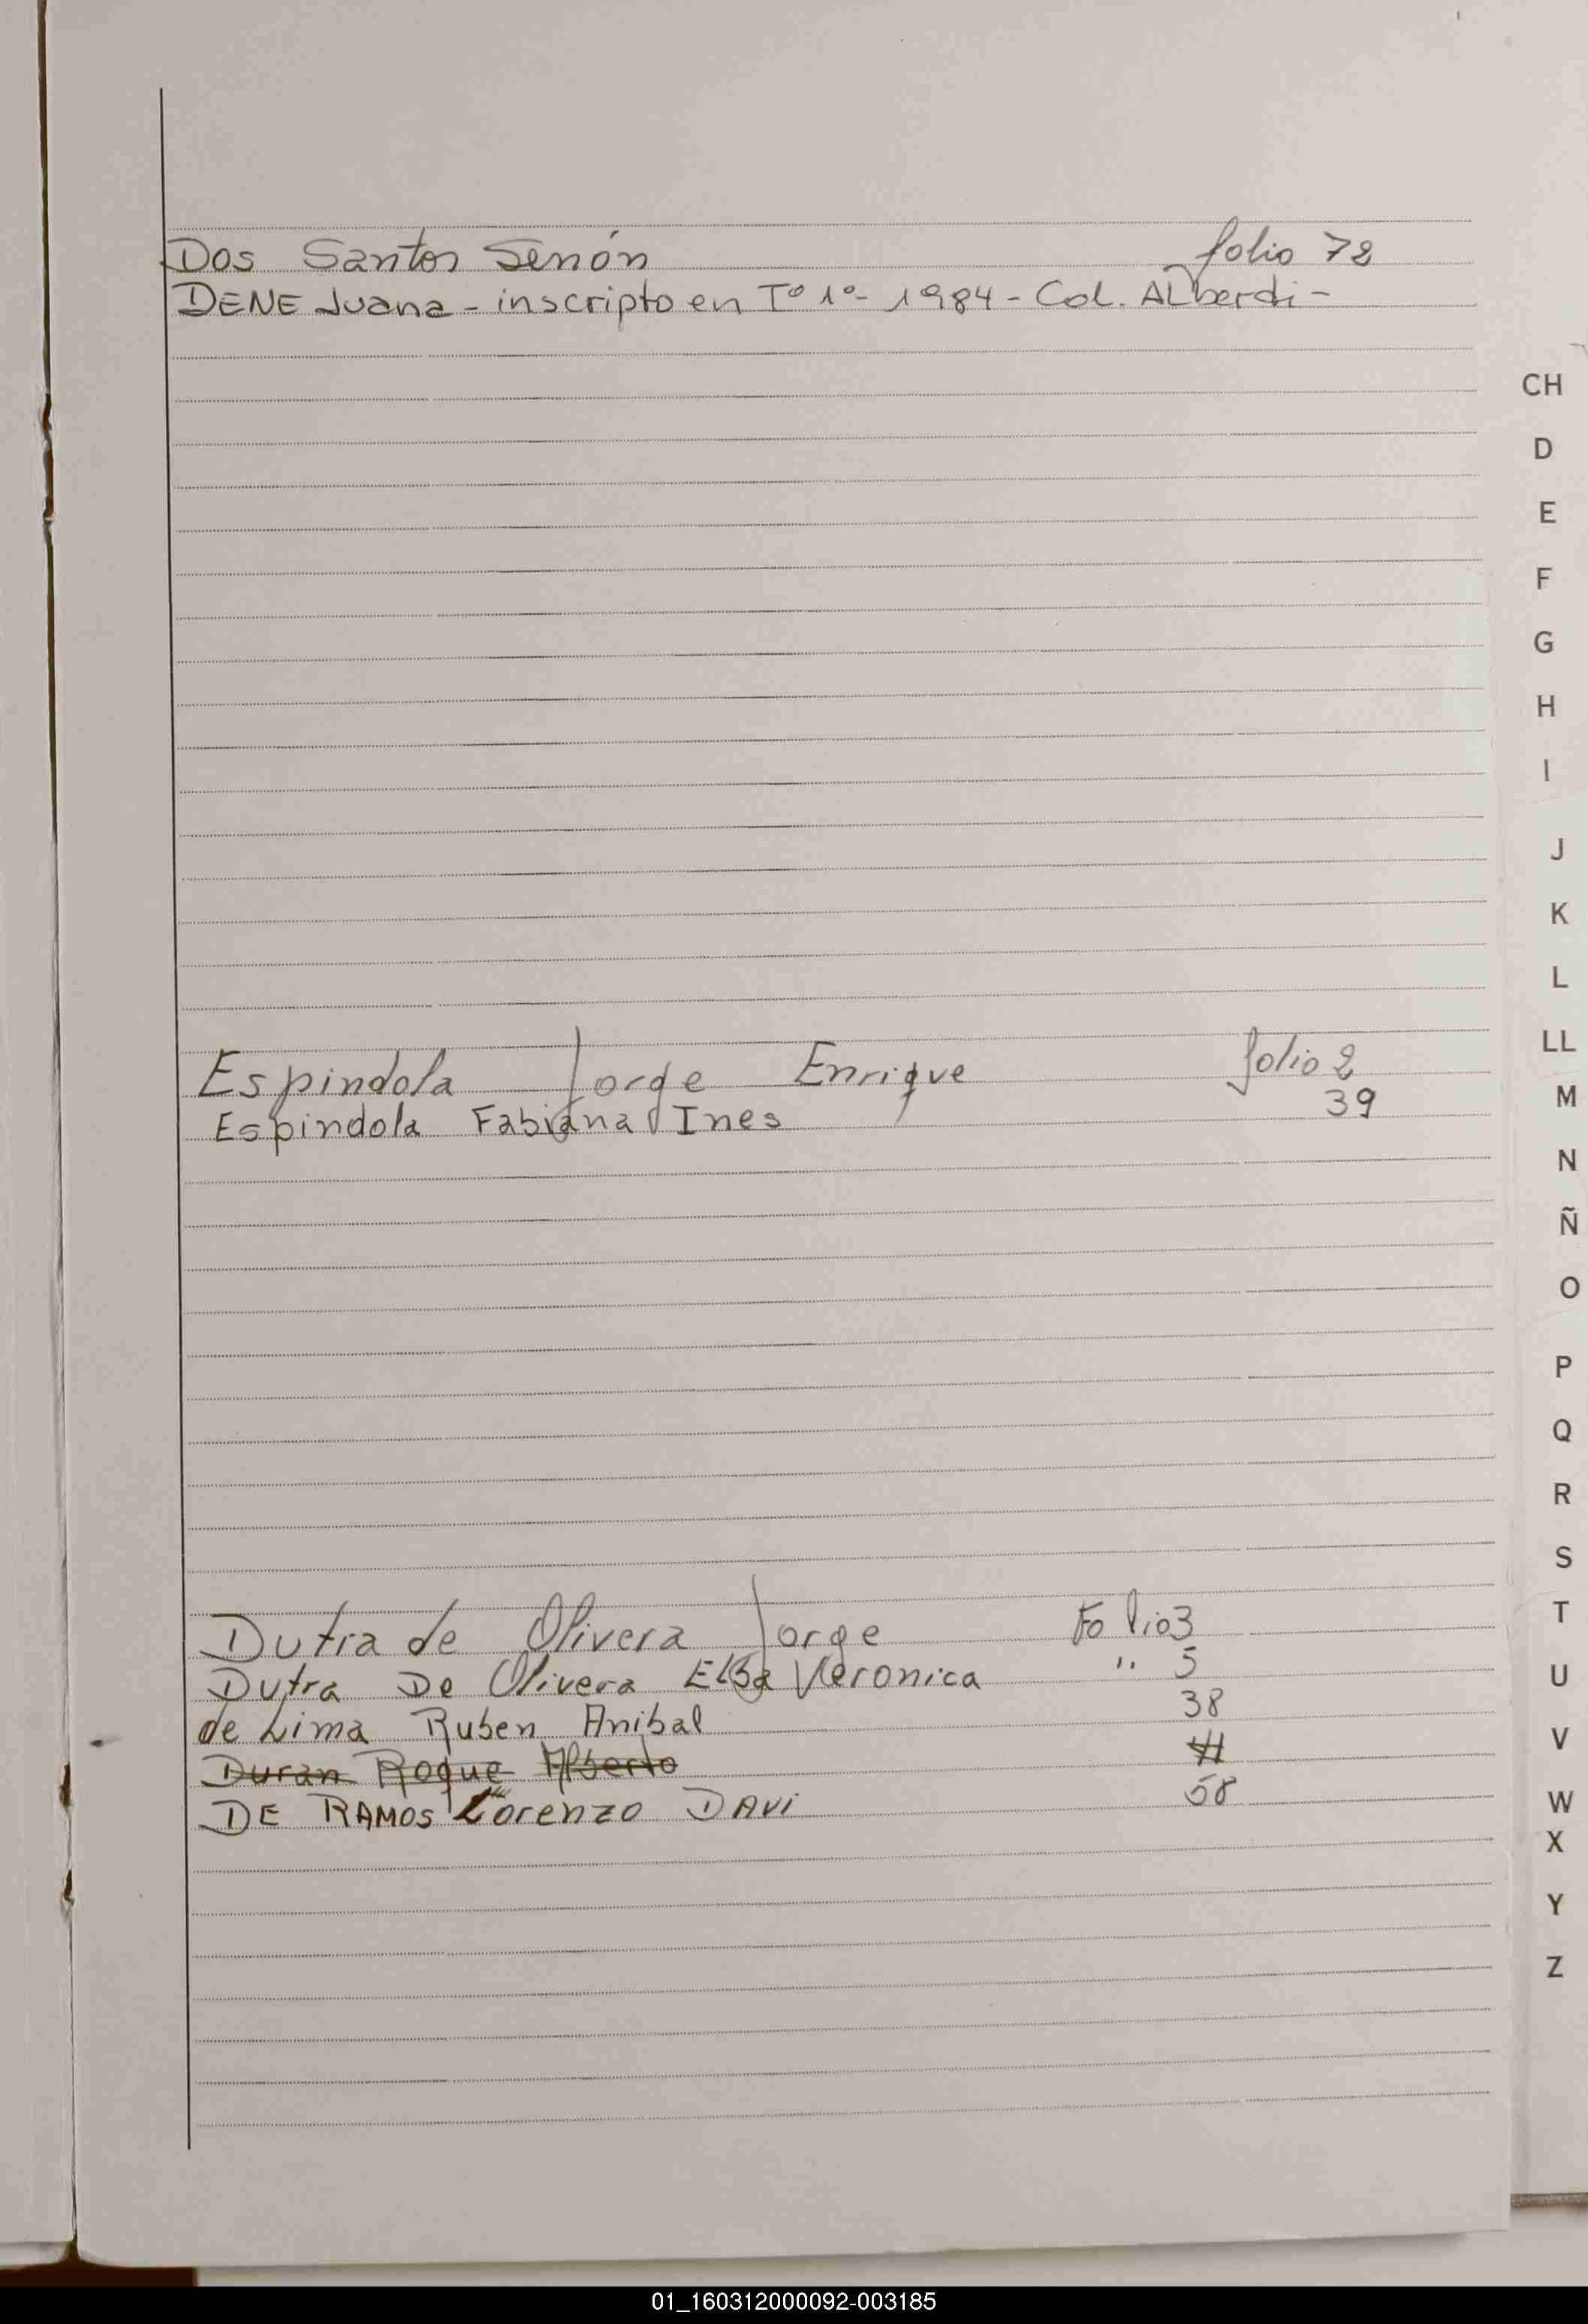 Dos Santos Senón folio 72
DENE Juana - inscripto en Tº 1º - 1984 - Col. ALberdi -
Espindola Jorge Enrique folio 2
Espindola Fabiana Ines 39
Dutra de Olivera Jorge Folio 3
Dutra De Olivera Elba Veronica " 5
de Lima Ruben Anibal 38
Duran Roque Alberto
DE RAMOS Lorenzo DAVi 58
CH
D
E
F
G
H
I
J
K
L
LL
M
N
Ñ
O
P
Q
R
S
T
U
V
W
X
Y
Z
01_160312000092-003185